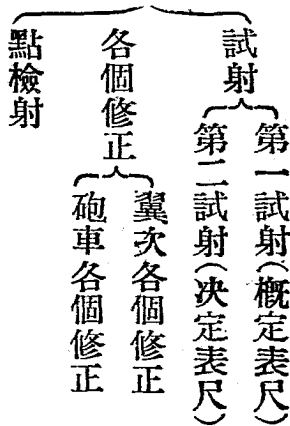 試射
第一試射(概定表尺)
第二試射(決定表尺)
各個修正
翼次各個修正
砲車各個修正
點檢射